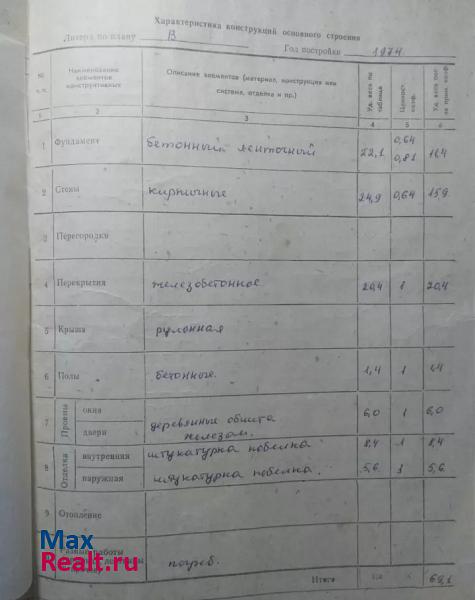 Характеристика конструкций основного строения
Литера по плану В Год постройки 1974
№ п.п. Наименование элементов конструктивных Описание элементов (материал, конструкция или система, отделка и пр.) Уд. веса по таблице Ценност. коэф. Уд. веса после прим. коэф.
1 2 3 4 5 6
0,64
1 Фундамент бетонный ленточный 22,1 0,81 16,4
2 Стены кирпичные 24,9 0,64 15,9
3 Перегородки
4 Перекрытия железобетонное 20,4 1 20,4
5 Крыша рулонная
6 Полы бетонные. 1,4 1 1,4
7 Проемы окна
двери деревянные обшита железом. 6,0 1 6,0
8 Отделка внутренняя штукатурка побелка 8,4 1 8,4
наружная штукатурка побелка. 5,6 1 5,6
9 Отопление
Разные работы погреб.
Итого
Max
Realt.ru